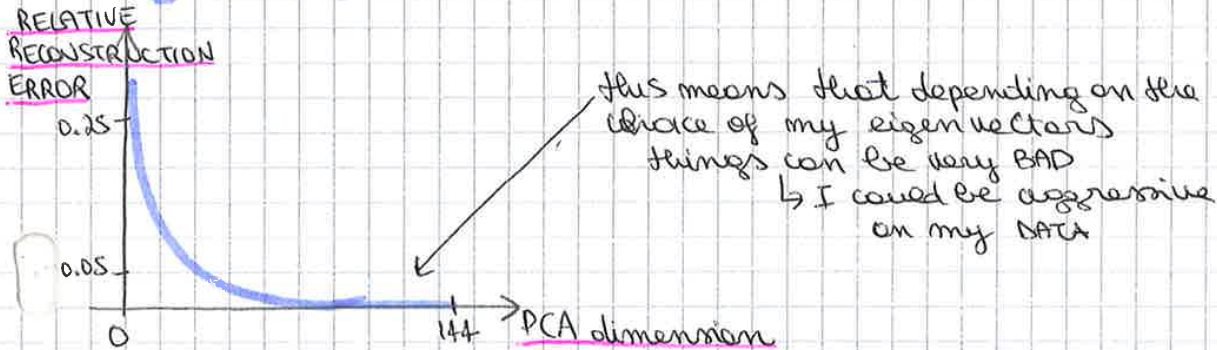 RELATIVE
RECONSTRUCTION
ERROR
0.25
0.05
0
144
PCA dimension
this means that depending on the
choice of my eigenvectors
things can be very BAD
↳ I could be aggressive
on my DATA